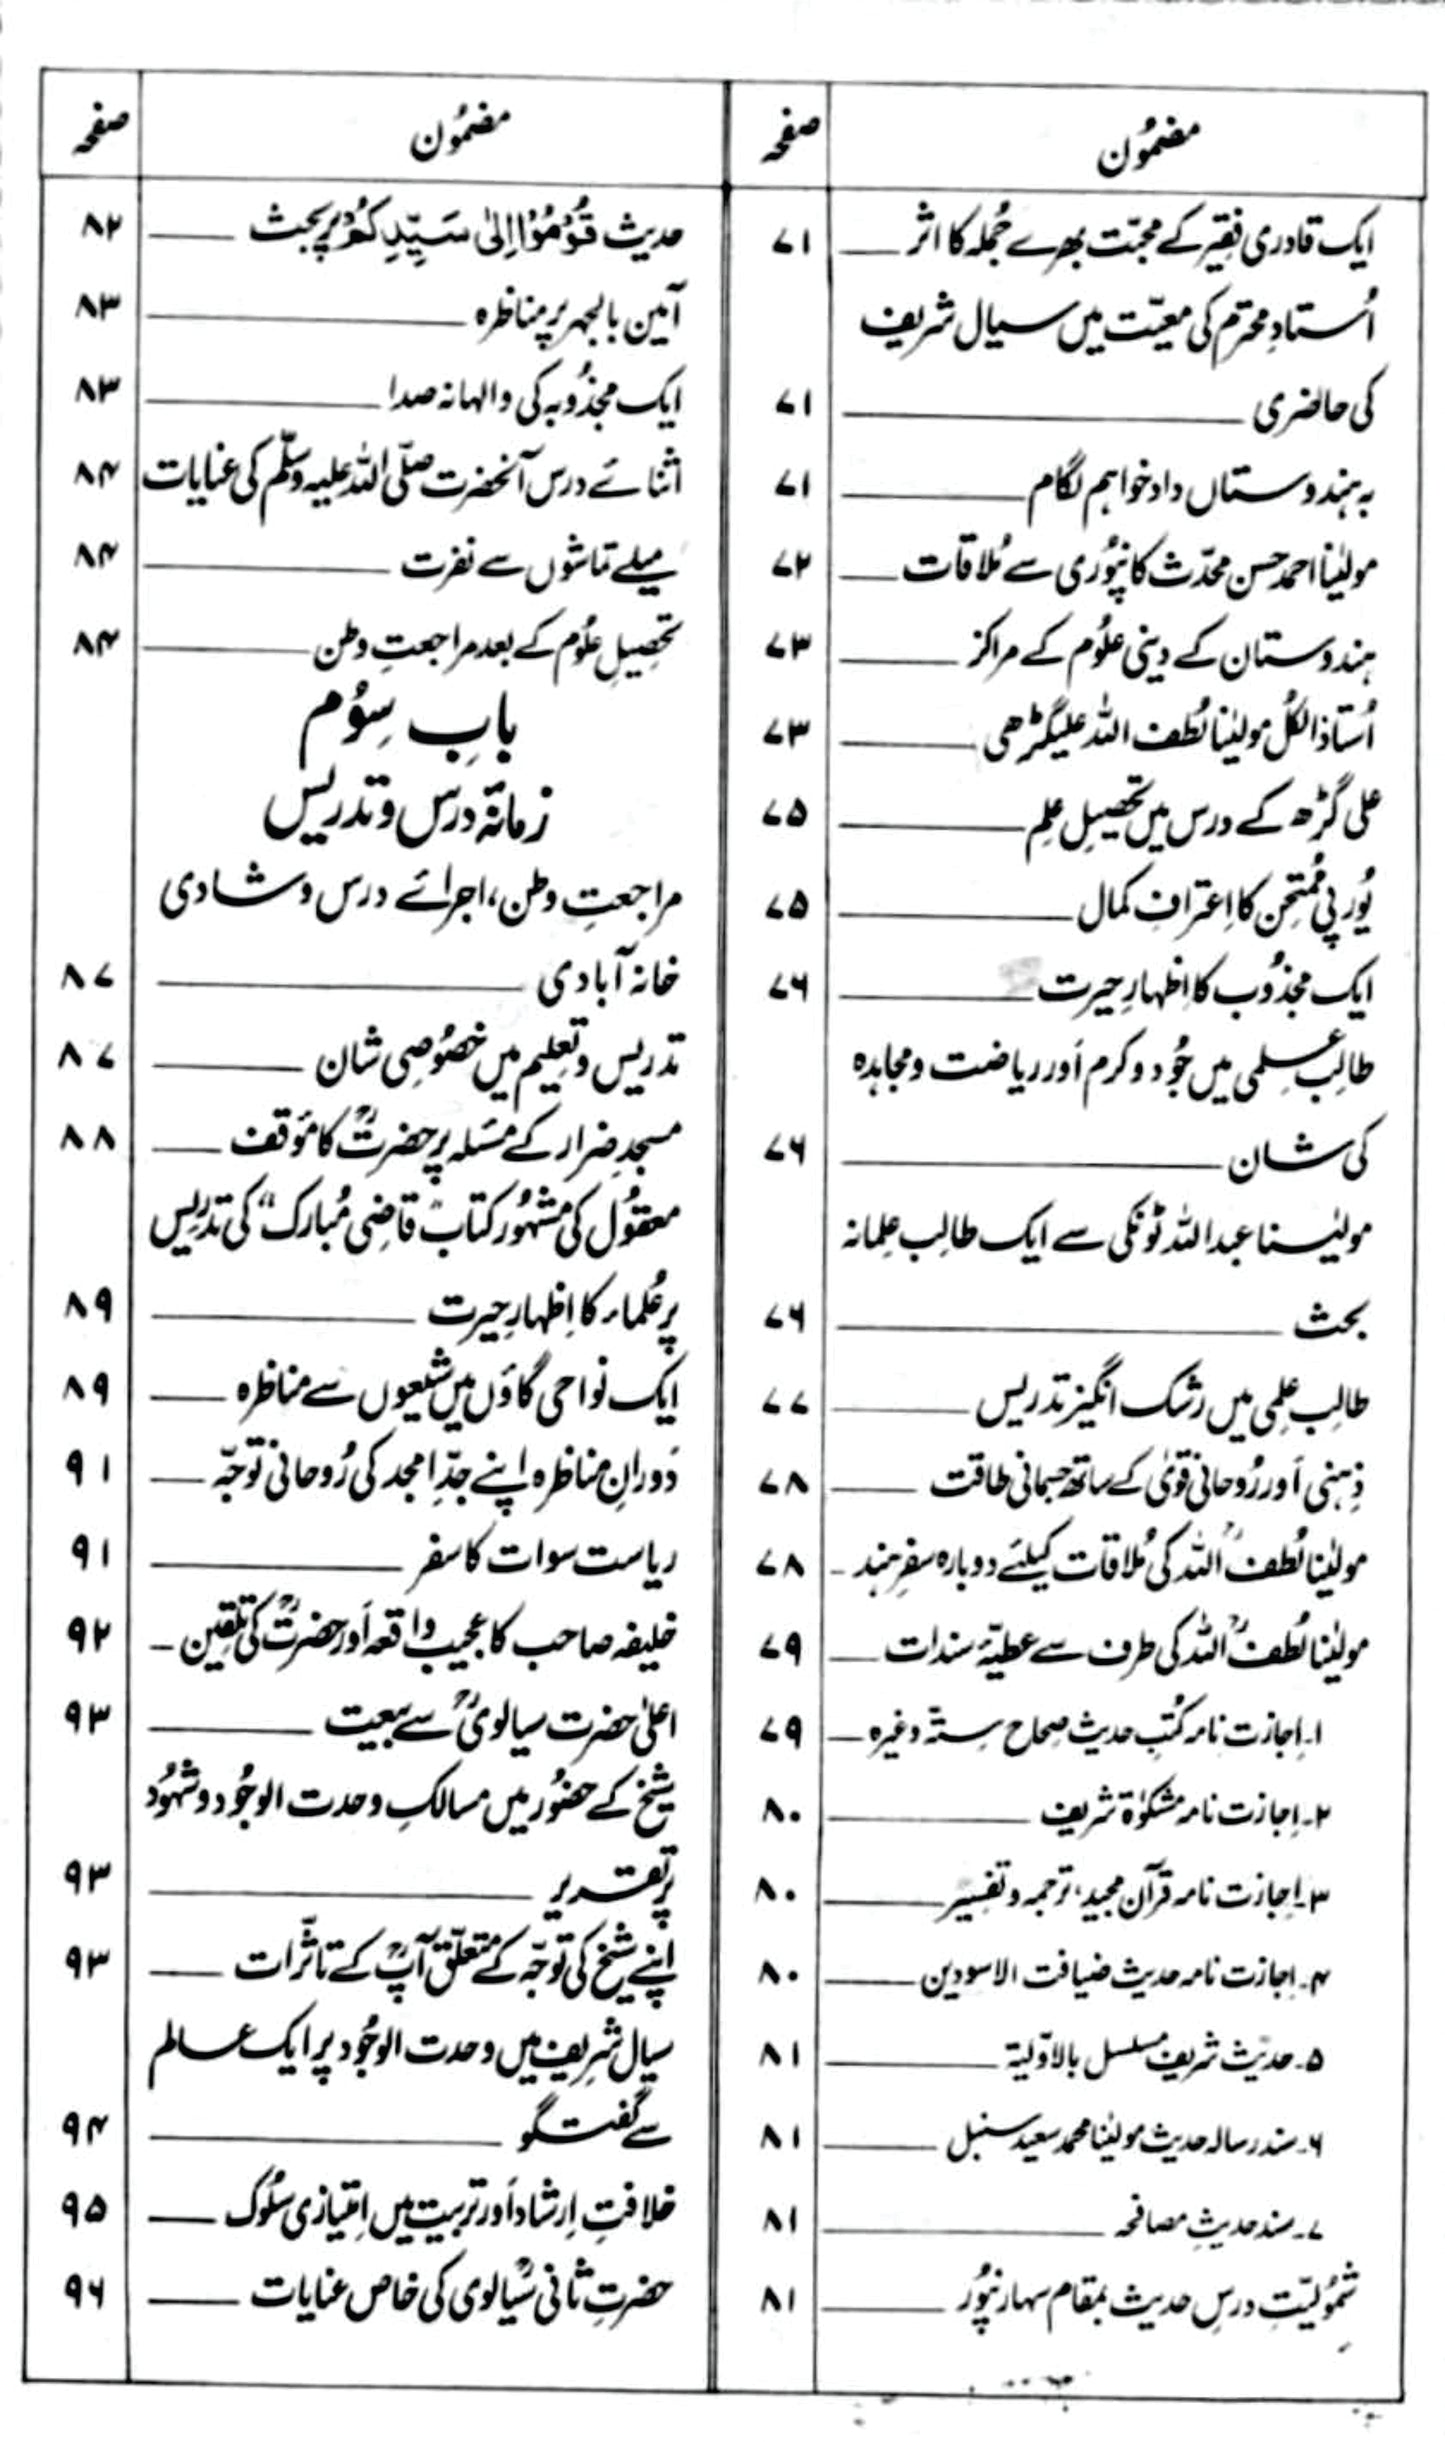 مضمُون
صفحہ
ایک قادری فقیر کے محبّت بھرے جُملہ کا اثر ۷۱
اُستادِ محترم کی معیّت میں سیال شریف
کی حاضری ۷۱
بہ ہندوستاں داد خواہم لگام ۷۱
مولیٰنا احمد حسن محدّث کانپوُری سے مُلاقات ۷۲
ہندوستان کے دینی علوُم کے مراکز ۷۳
اُستاذ الکُل مولیٰنا لُطف اللہ علیگڑھی ۷۳
علی گڑھ کے درس میں تحصیلِ عِلم ۷۵
یُورپی مُمتحِن کا اِعترافِ کمال ۷۵
ایک مجذوُب کا اِظہارِ حیرت ۷۶
طالِب علمی میں جُود و کرم اَور ریاضت و مجاہدہ
کی شان ۷۶
مولیٰنا عبداللہ ٹونکی سے ایک طالِب عِلمانہ
بحث ۷۶
طالِب عِلمی میں رشک انگیز تدریس ۷۷
ذِہنی اَور رُوحانی قویٰ کے ساتھ جسمانی طاقت ۷۸
مولیٰنا لُطفؒ اللہ کی مُلاقات کیلئے دوبارہ سفرِ ہند ۷۸
مولیٰنا لُطفؒ اللہ کی طرف سے عطیّۂ سندات ۷۹
۱۔ اِجازت نامہ کُتبِ حدیث صحاح ستّہ وغیرہ ۷۹
۲۔ اِجازت نامہ مشکوٰۃ شریف ۸۰
۳۔ اِجازت نامہ قرآن مجید، ترجمہ و تفسیر ۸۰
۴۔ اِجازت نامہ حدیث ضیافت الاسودین ۸۰
۵۔ حدیث شریف مسلسل بالاوّلیۃ ۸۱
۶۔ سند رسالہ حدیث مولیٰنا محمد سعید سنبل ۸۱
۷۔ سند حدیثِ مصافحہ ۸۱
شمُولیّتِ درسِ حدیث بمقام سہارنپوُر ۸۱
مضمُون
صفحہ
حدیث قُوْمُوْا اِلیٰ سَیِّدِکُمْ پر بحث ۸۲
آمین بالجہر پر مناظرہ ۸۳
ایک مجذوُبہ کی والہانہ صدا ۸۳
اثنائے درس آنحضرت صلّی اللہ علیہ وسلّم کی عنایات ۸۴
میلے تماشوں سے نفرت ۸۴
تحصیلِ علوُم کے بعد مراجعتِ وطن ۸۴
بابِ سِوُم
زمانۂ درس و تدریس
مراجعتِ وطن، اجرائے درس و شادی
خانہ آبادی ۸۷
تدریس و تعلیم میں خصُوصی شان ۸۷
مسجدِ ضرار کے مسئلہ پر حضرتؒ کا مؤقف ۸۸
معقوُل کی مشہُور کتاب ”قاضی مُبارک“ کی تدریس
پر عُلماء کا اِظہارِ حیرت ۸۹
ایک نواحی گاؤں میں شیعوں سے مناظرہ ۸۹
دَورانِ مناظرہ اپنے جدِّ امجد کی رُوحانی توجّہ ۹۱
ریاست سوات کا سفر ۹۱
خلیفہ صاحب کا عجیب واقعہ اَور حضرتؒ کی تلقین ۹۲
اعلیٰ حضرت سیالویؒ سے بیعت ۹۳
شیخ کے حضُور میں مسالکِ وحدت الوجُود و شہُود
پر تقریر ۹۳
اپنے شیخ کی توجّہ کے متعلّق آپؒ کے تاثّرات ۹۳
سیال شریف میں وحدت الوجُود پر ایک عالم
سے گفتگو ۹۴
خلافتِ اِرشاد اَور تربیت میں اِمتیازی سلُوک ۹۵
حضرتِ ثانی سیالویؒ کی خاص عنایات ۹۶